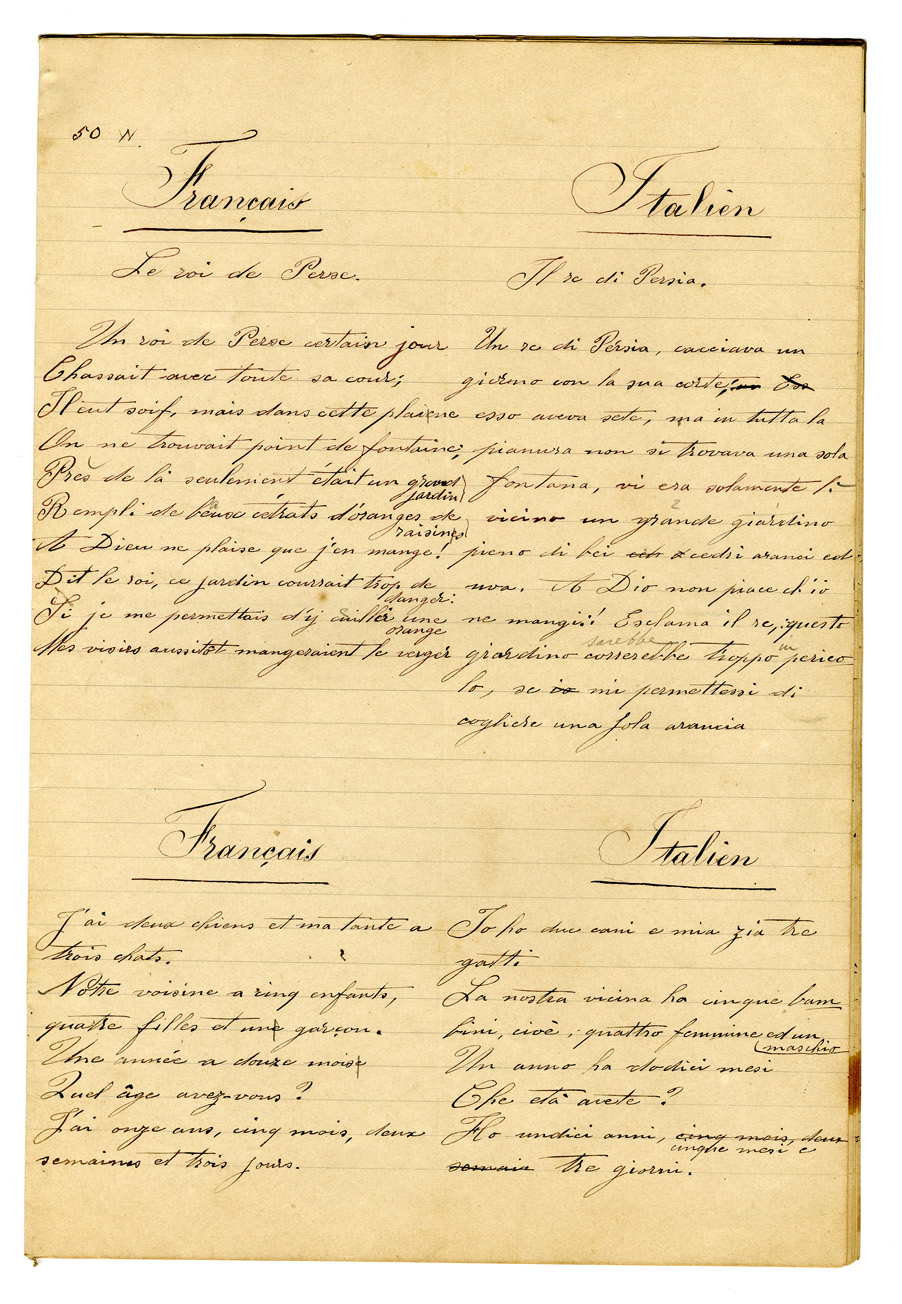 50 N.
Français
Le roi de Perse.
Un roi de Perse certain jour
Chassait avec toute sa cour;
Il eut soif, mais dans cette plaiene
On ne trouvait point de fontaine;
Près de là seulement était un grand
jardin
Rempli de beaux cétrats d'oranges de
raisines
A Dieu ne plaise que j'en mange!
Dit le roi, ce jardin courrait trop de
danger:
Si je me permettais d'y cuillir une
orange
Mes visirs aussitot mangeraient le verger
Italièn
Il re di Persia.
Un re di Persia, cacciava un
giorno con la sua corte;
esso aveva sete, ma in tutta la
pianura non si trovava una sola
fontana, vi era solamente li
vicino un grande giardino
pieno di bei cedri aranci ed
uva. A Dio non piace ch'io
ne mangi! Esclama il re, questo
sarebbe in
giardino correrebbe troppo perico
lo, se io mi permettersi di
cogliere una sola arancia
Français
J'ai deux chiens et ma tante a
trois chats.
Notre voisine a cinq enfants,
quatre filles et une garçon.
Une année a douze mois
Quel âge avez-vous?
J'ai onze ans, cinq mois, deux
semaines et trois jours.
Italièn
Io ho due cani e mia zia tre
gatti
La nostra vicina ha cinque bam
bini, cioè, quattro feminine ed un
maschio
Un anno ha dodici mesi
Che età avete?
Ho undici anni, cinq mois, deux
cinque mesi e
semain tre giorni.